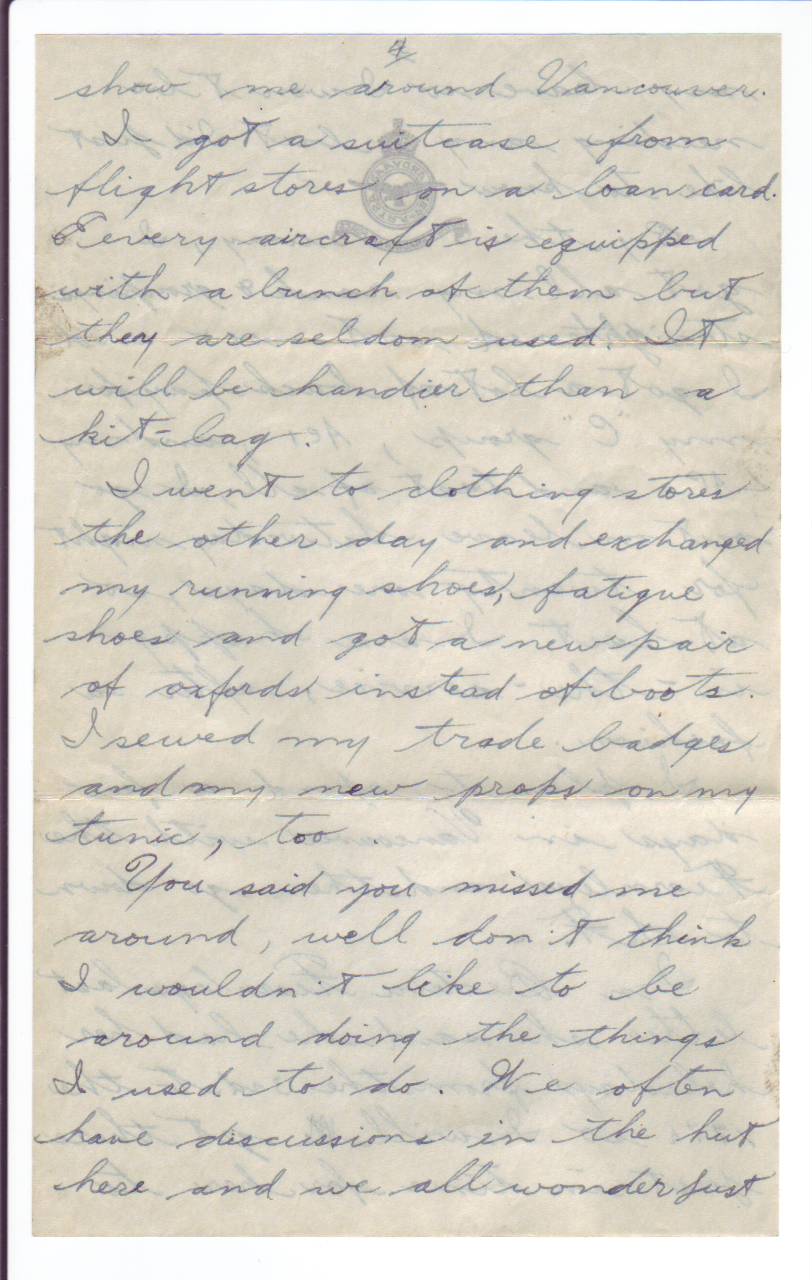 4
show me around Vancouver.
I got a suitcase from
flight stores on a loan card.
Eevery aircraft is equipped
with a bunch of them but
they are seldom used. It
will be handier than a
kit-bag.
I went to clothing stores
the other day and exchanged
my running shoes, fatigue
shoes and got a new pair
of oxfords instead of boots.
I sewed my trade badges
and my new props on my
tunic, too.
You said you missed me
around, well don't think
I wouldn't like to be
around doing the things
I used to do. We often
have discussions in the hut
here and we all wonder just